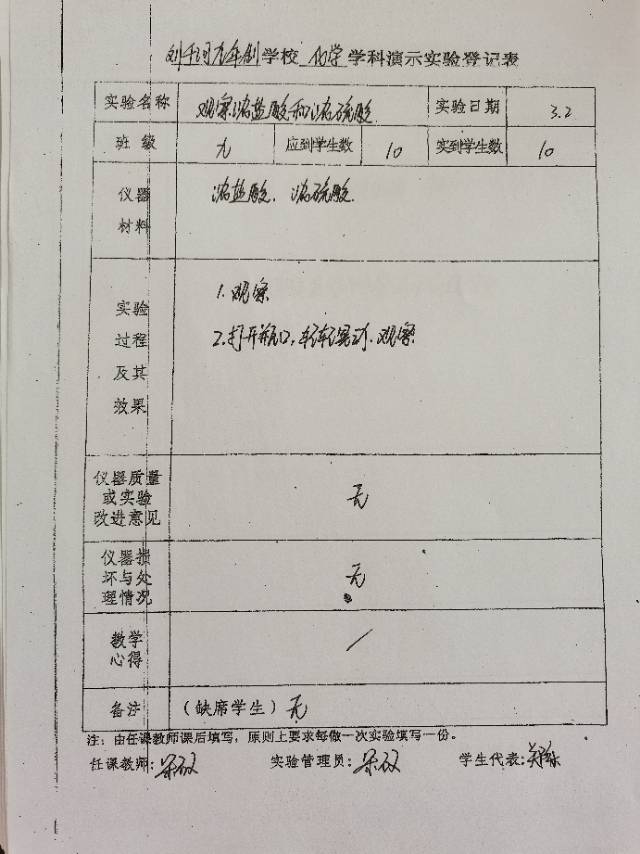 刘千河九年制学校 化学 学科演示实验登记表
实验名称 观察浓盐酸和浓硫酸 实验日期 3.2
班级 九 应到学生数 10 实到学生数 10
仪器
材料
浓盐酸、浓硫酸
实验
过程
及其
效果
1.观察
2.打开瓶口,轻轻晃动、观察
仪器质量
或实验
改进意见
无
仪器损
坏与处
理情况
无
教学
心得
/
备注 (缺席学生) 无
注:由任课教师课后填写,原则上要求每做一次实验填写一份。
任课教师: 实验管理员: 学生代表: